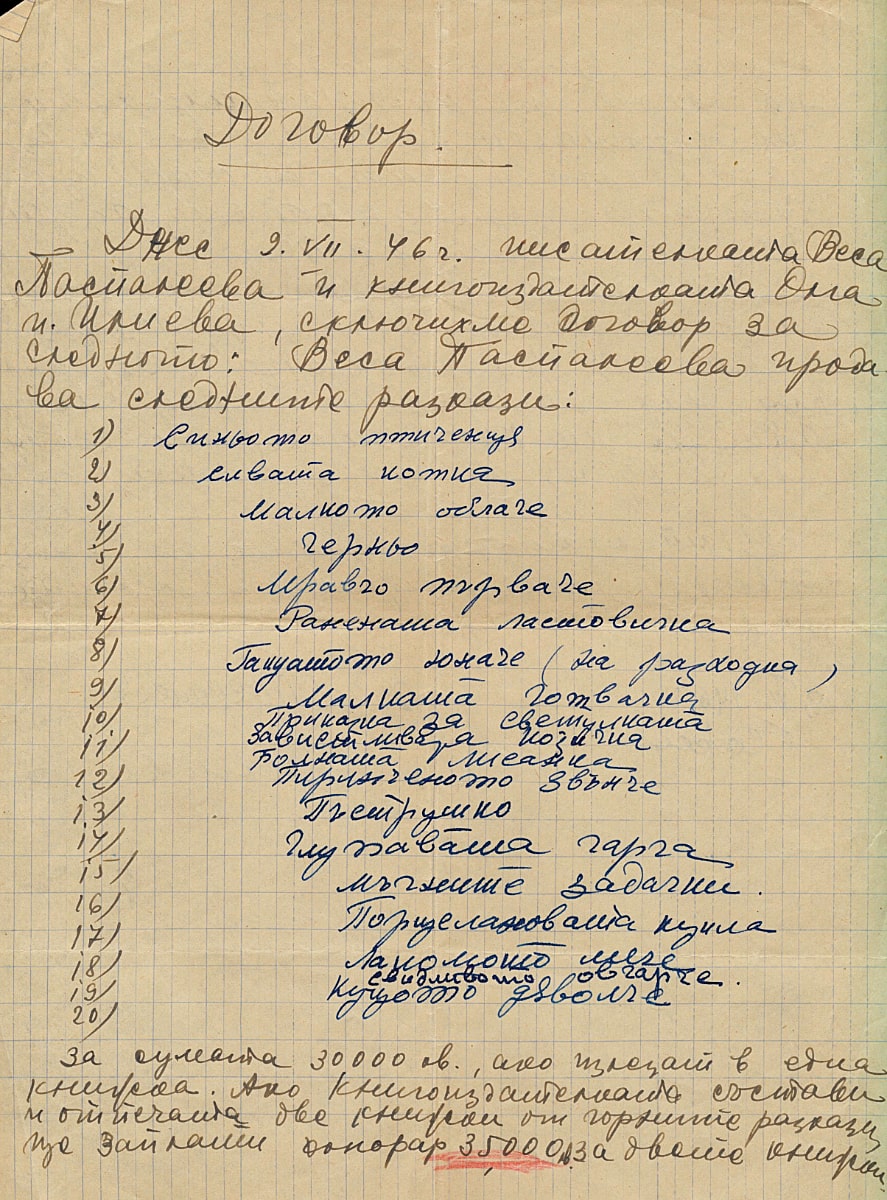 Договор.
Днес 9. VII. 46 г. писателката Веса
Паспалеева и книгоиздателката Олга
п. Илиева, сключихме договор за
следното: Веса Паспалеева прода-
ва следните разкази:
1) Синьото птиченце
2) Сивата котка
3) Малкото облаче
4) Черньо
5)
6) Мравчо първаче
7) Ранената ластовичка
8) Гащатото юначе (на разходка)
9) Малката готвачка
10) Приказка за светулката
11) Завистливата козичка
Болната лисанка
12) звънче
13) Пъструшко
14) Глухавата гарга
15) мъчните задачки.
16) Порцелановата кукла
17)
18) Лакомото мече
19) свидливото овчарче.
20) Куцото дяволче
За сумата 30000 лв., ако излезат в една
книжка. Ако книгоиздателката състави
и отпечата две книжки от горните разкази,
ще заплати хонорар 35,000 лв. за двете книжки.